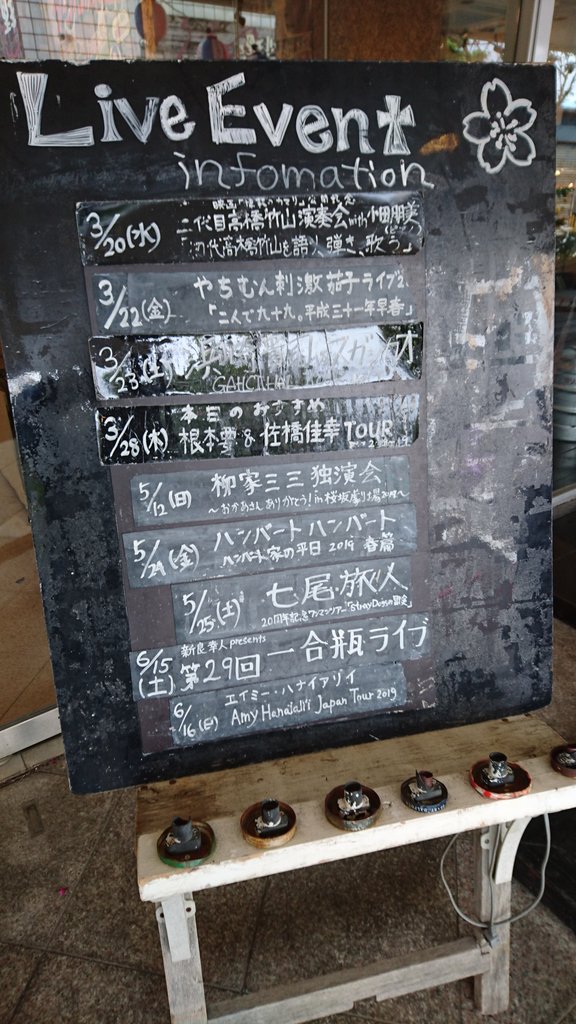 Live Event
infomation
3/20(水) 二代目高橋竹山演奏会with小田朋美
「初代高橋竹山を語り、弾き、歌う」
3/22(金) やちむん刺激茄子ライブ
「二人で九十九。平成三十一年早春」
3/23(土)
3/28(木) 本日のおすすめ
根本要&佐橋佳幸TOUR
5/12(日) 柳家三三独演会
～おかあさんありがとう!in桜坂劇場
5/24(金) ハンバートハンバート
ハンバート家の平日 2019 春篇
5/25(土) 七尾旅人
20周年記念ワンマンツアー「Stray Dogsの
新良幸人 presents
6/15(土) 第29回 一合瓶ライブ
エイミー・ハナイアリイ
6/16(日) Amy Hanaiali'i Japan Tour 2019